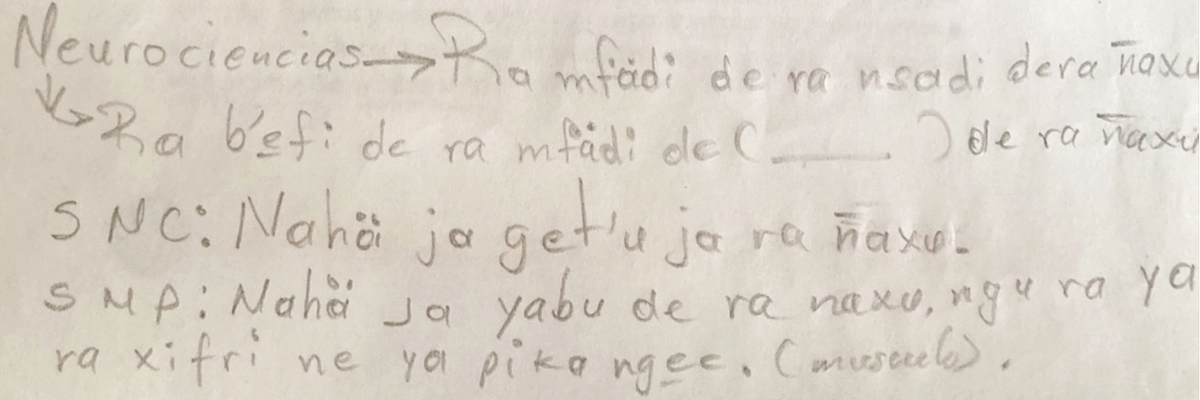 Neurociencias → Ra mfädi de ra nsadi dera ñaxu
↳ Ra b'e̲fi de ra mfädi de (____) de ra ñaxu
SNC: Nahä ja get'u ja ra ñaxu.
SNP: Nahä ja yabu de ra naxu, ngu ra ya
ra xifri ne ya pika nge̲e. (musculo).